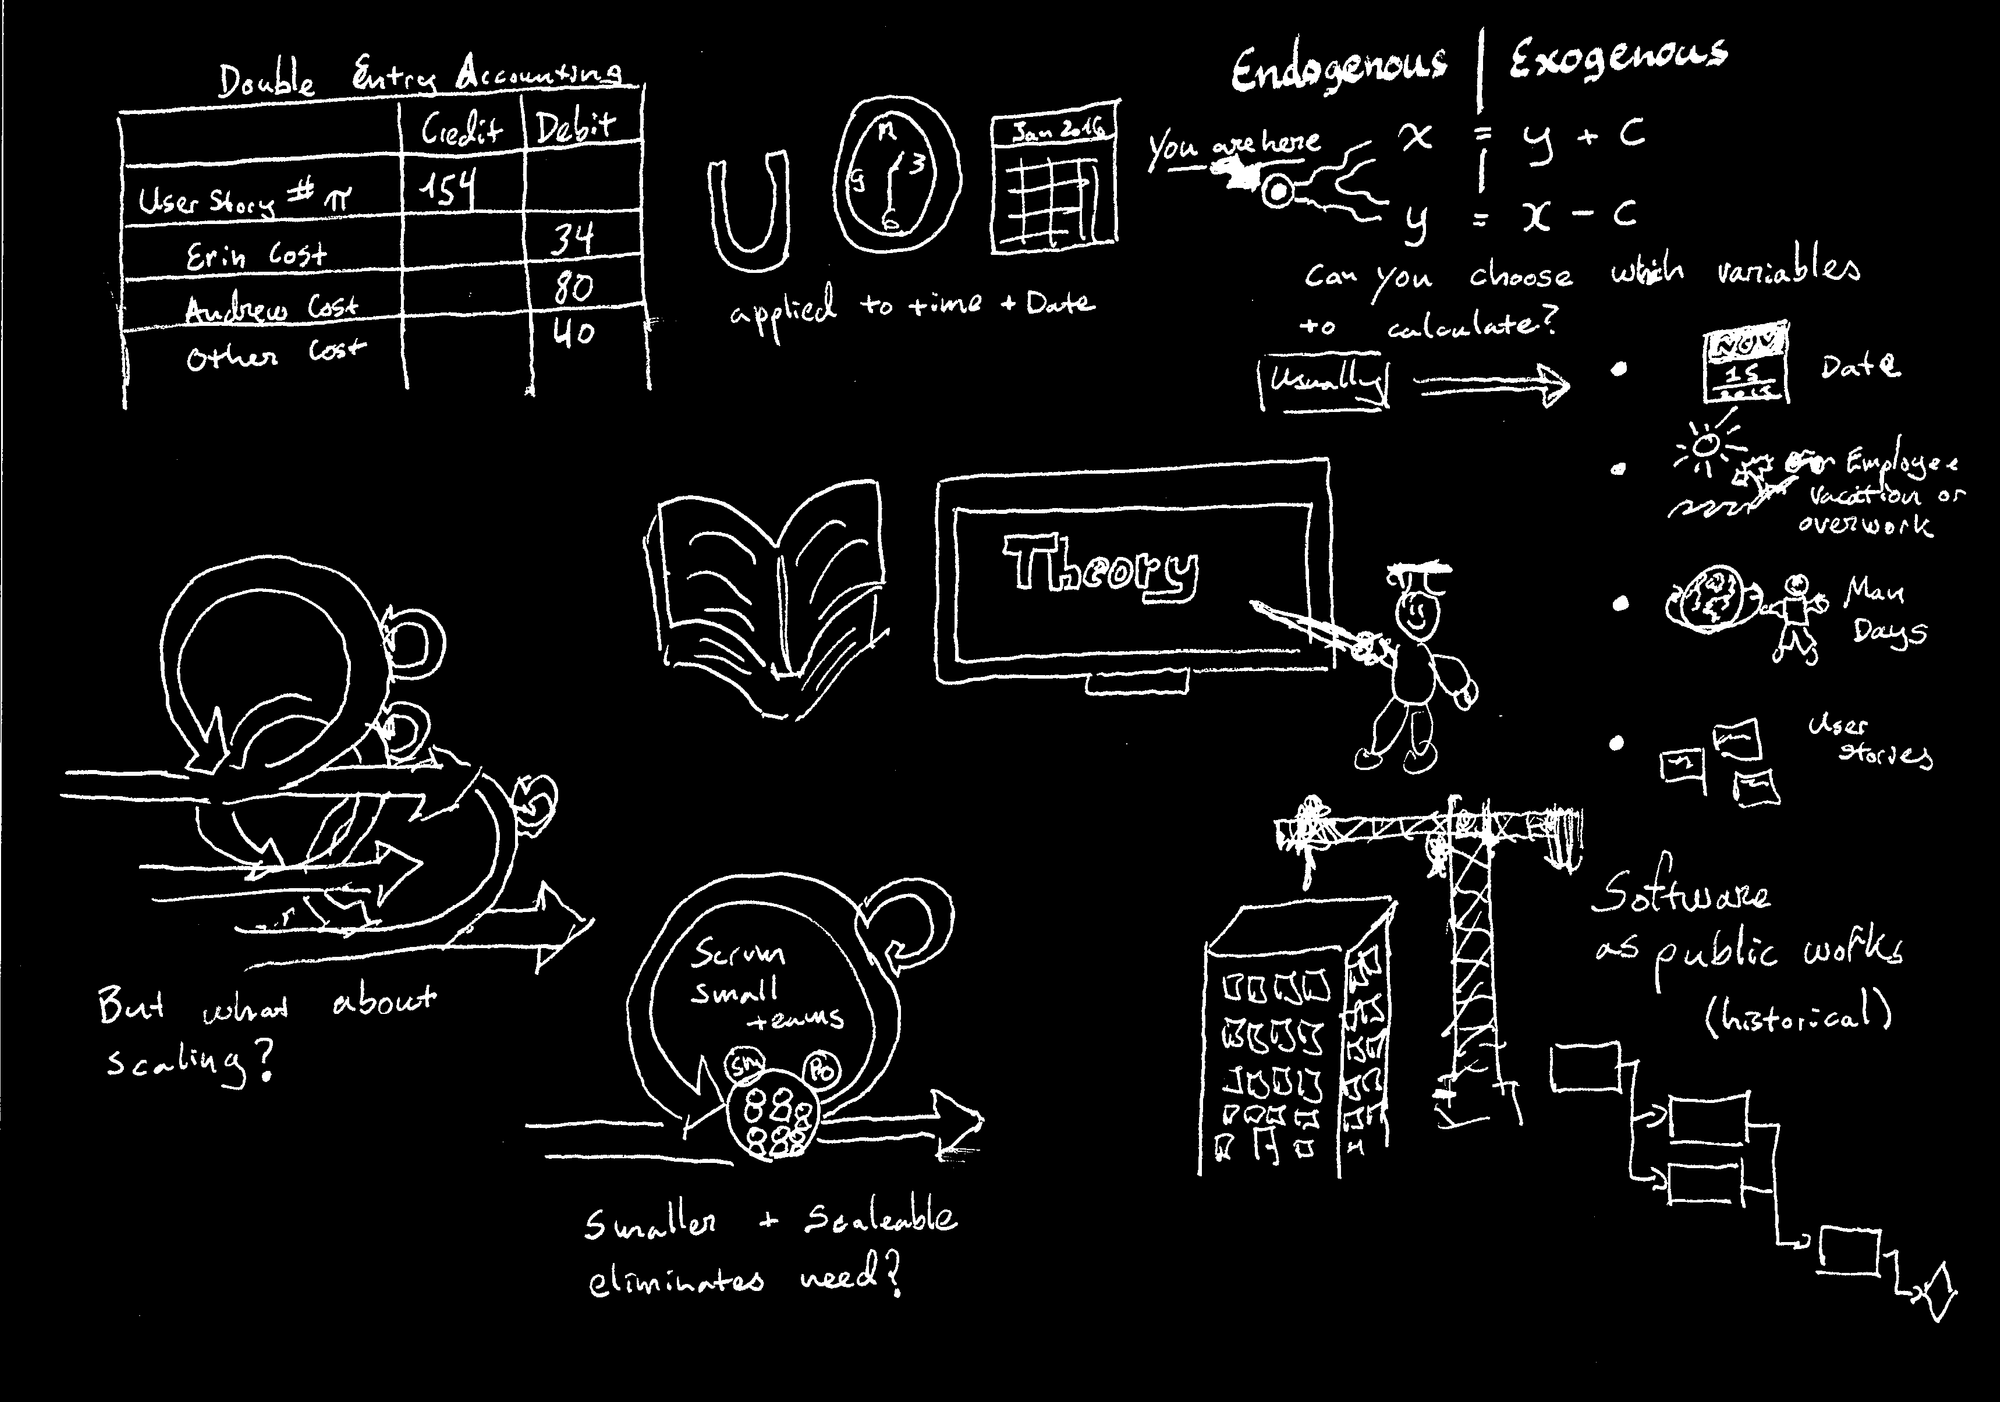 Double Entry Accounting
Credit Debit
User Story # π 154
Erin Cost 34
Andrew Cost 80
Other Cost 40
12
3
6
9
Jan 2016
applied to time + Date
Endogenous | Exogenous
You are here
x = y + c
y = x - c
Can you choose which variables
to calculate?
Usually
NOV
15
2015
Date
Employee
vacation or
overwork
Man
Days
User
stories
Theory
But what about
scaling?
Scrum
small
teams
SM
PO
Smaller + Scaleable
eliminates need?
Software
as public works
(historical)